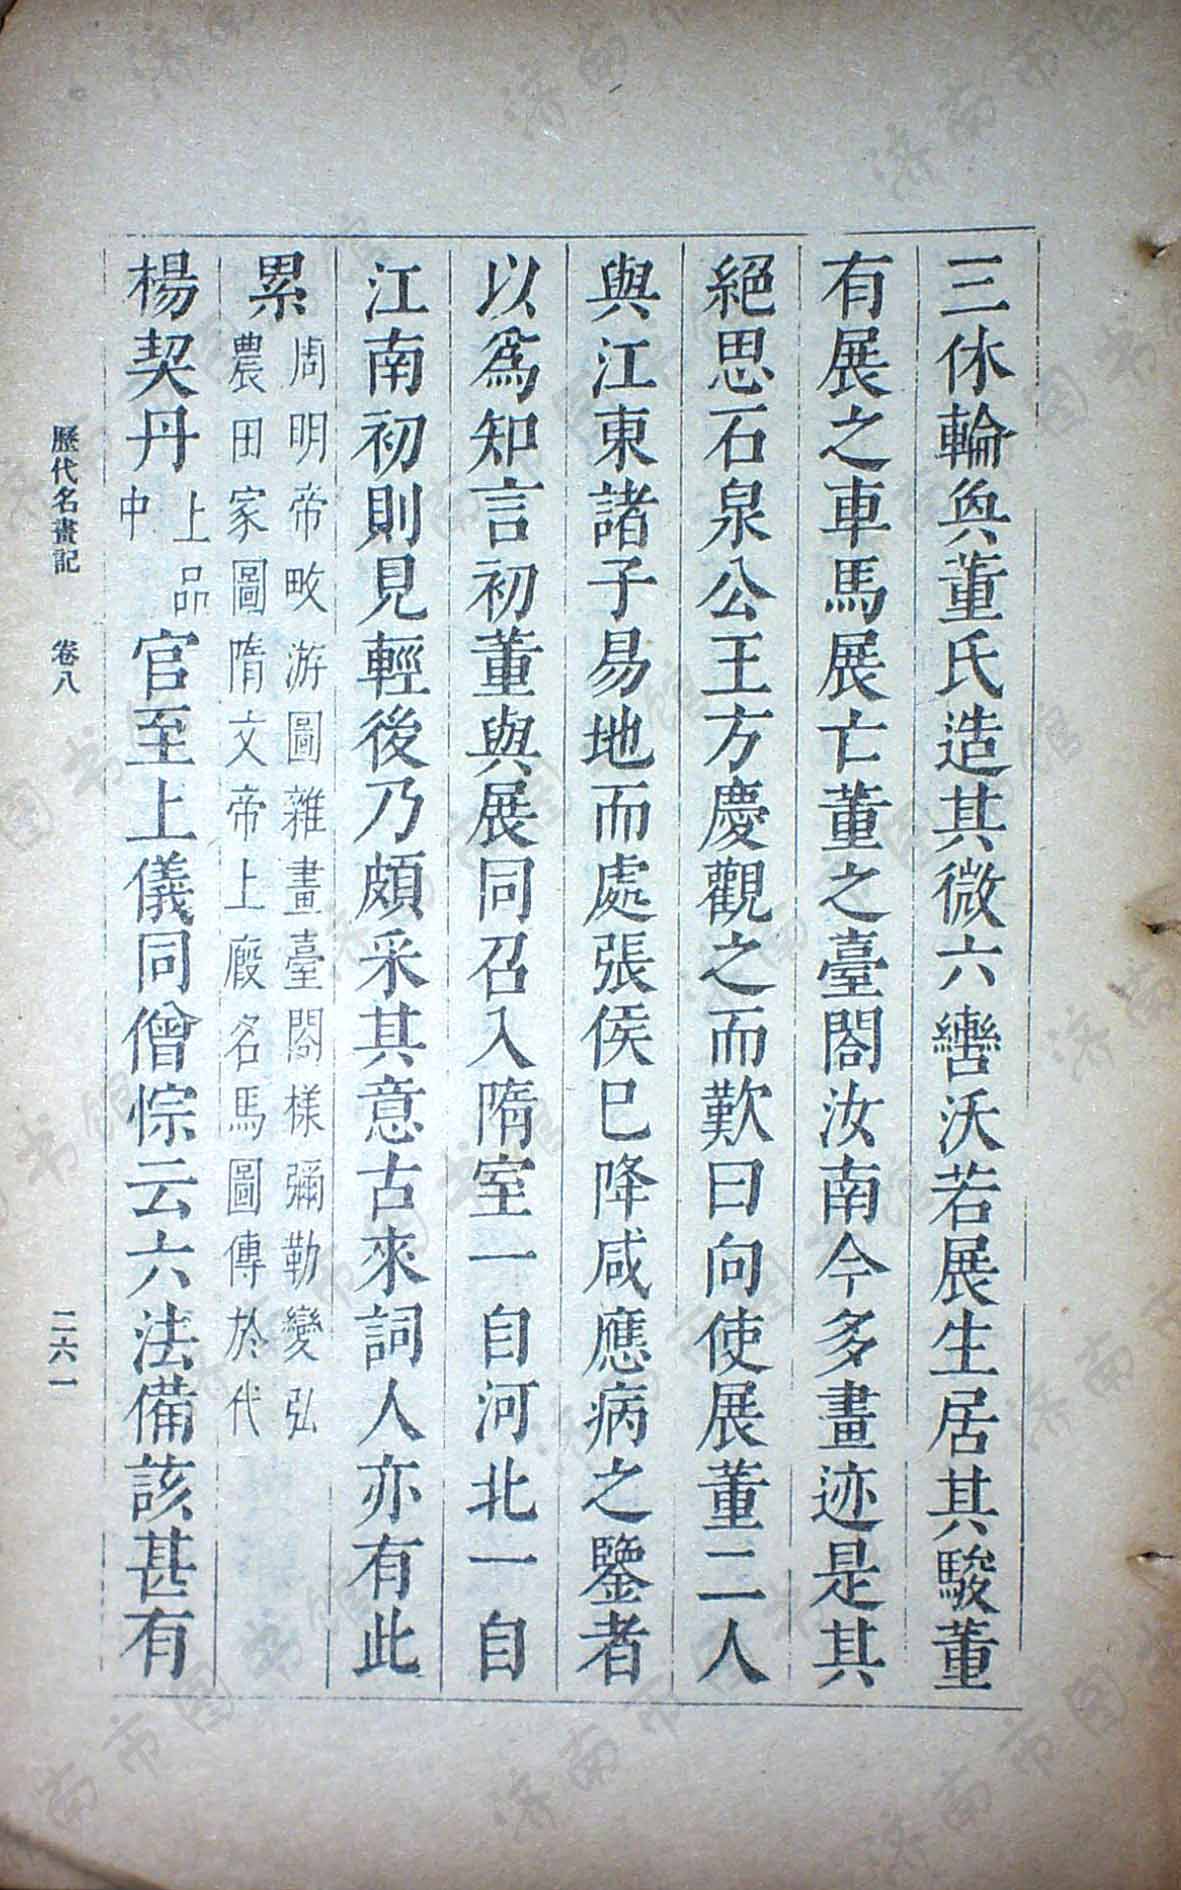 三休輪奐董氏造其微六轡沃若展生居其駿董
有展之車馬展亡董之臺閣汝南今多畫迹是其
絕思石泉公王方慶觀之而歎曰向使展董二人
與江東諸子易地而處張侯已降咸應病之鑒者
以爲知言初董與展同召入隋室一自河北一自
江南初則見輕後乃頗采其意古來詞人亦有此
累周明帝畋游圖雜畫臺閣樣彌勒變弘
農田家圖隋文帝上廄名馬圖傳於代
楊契丹上品中官至上儀同僧悰云六法備該甚有
歷代名畫記 卷八 二六一
济南市图书馆